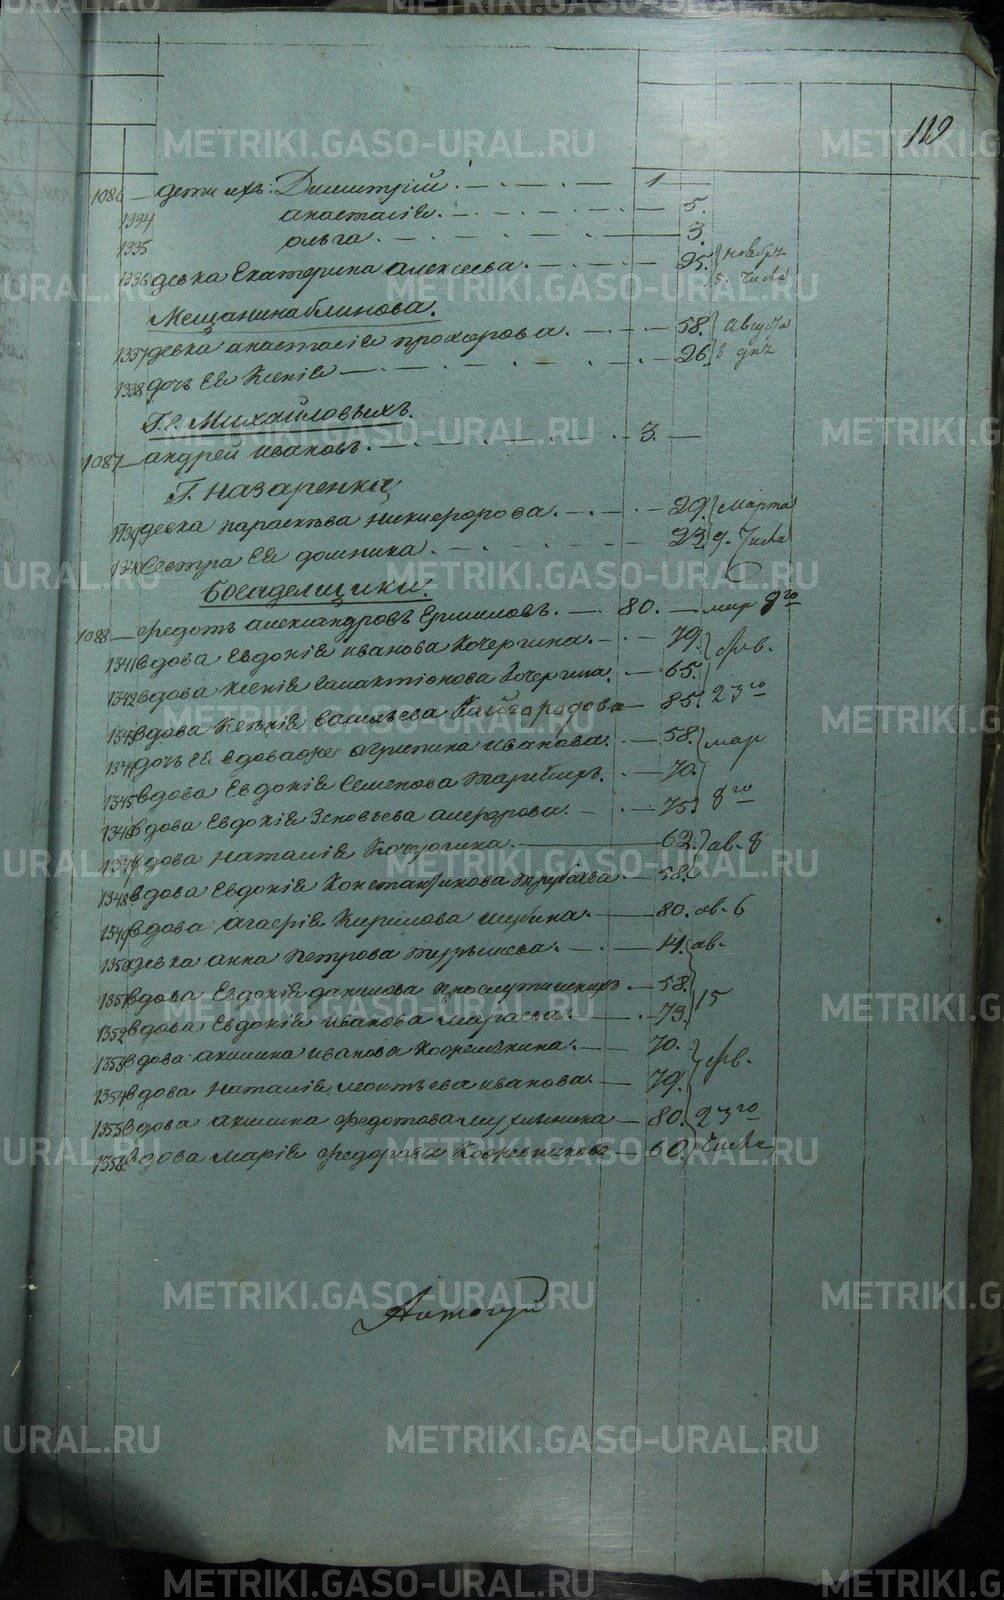 119
1086 — дети ихъ: Димитрій. — 1
1334 анастасіѣ. — 5.
1335 ольга. — 3.
1336 дѣвка Екатерина алексеева. — 25. ноября 5. числа
Мещанина блинова.
1337 девка анастасіѣ прохорова. — 58. Августа
1338 дочь Еѣ Ксеніѣ — 26. 6 дня
Г. с. Михайловыхъ.
1087 — андрей ивановъ. — 3. —
Г. назаренки
1339 девка параскева никифорова. — 29. Марта
1340 Сестра Еѣ домника. — 23. 9. Числа
Богаделщики.
1088 — федотъ александровъ Ермиловъ. — 80. — мар 9го
1341 вдова Евдокіѣ иванова Кочергина. — 79. фев.
1342 вдова Ксеніѣ Галактіонова Кочергина. — 65.
1343 вдова Ксеніѣ васильева Кайгородова — 85. 23го
1344 дочь Еѣ вдоваже агрипина иванова. — 58. мар
1345 вдова Евдокіѣ Семенова — 70.
1346 вдова Евдокіѣ Зеновьева алферова. — 75. 8го
1347 вдова наталіѣ Кочергина. — 62. ав. 8
1348 вдова Евдокіѣ Константинова — 58.
1349 вдова агафіѣ Кирилова — 80. ав. 6
1350 девка анна Петрова — 14. ав.
1351 вдова Евдокіѣ данилова — 58. 15
1352 вдова Евдокіѣ иванова — 73.
1353 вдова акилина иванова — 70. фев.
1354 вдова наталіѣ леонтьева иванова. — 79.
1355 вдова акилина федотова — 80. 23го
1356 вдова Маріѣ федорова — 60. Числа